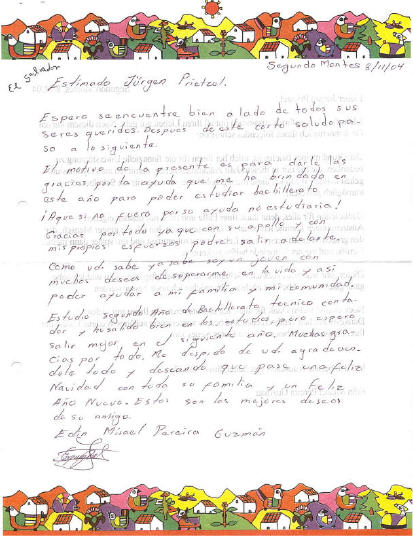 Segundo Montes 8/11/04
El Salvador
Estimado Jürgen Prietzel.
Espero se encuentre bien a lado de todos sus
seres queridos. Despues de este corto saludo pa-
so a lo siguiente.
El motivo de la presente es para darle las
gracias por la ayuda que me ha brindado en
este año para poder estudiar bachillerato
¡Aque si no fuera por su ayuda no estudiaria!
Gracias por todo ya que con su apollo y con
mis propios esfuerzos podre salir adelante.
Como ud. sabe ya sabe soy un joven con
muchos deseos de superarme en la vida y asi
poder ayudar a mi familia y mi comunidad.
Estudio segundo Año de Bachillerato tecnico conta-
dor y he salido bien en los estudios, pero espero
salir mejor en el siguiente año. Muchas gra-
cias por todo. Me despido de ud. agradecien-
dole todo y deseando que pase una feliz
Navidad con toda su familia y un Feliz
Año Nuevo. Estos son los mejores deseos
de su amigo.
Edin Misael Pereira Guzmán